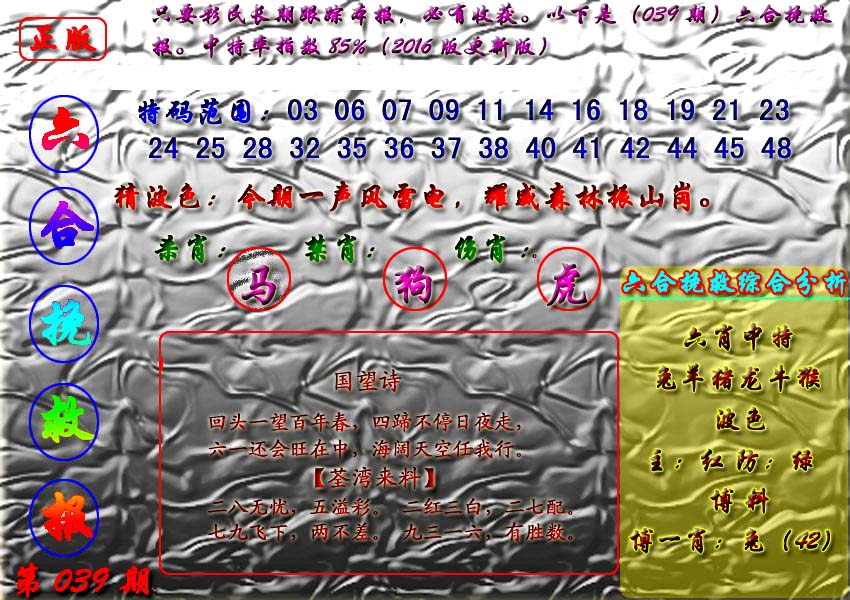 正版
只要彩民长期跟踪本报，必有收获。以下是（039期）六合挽救
报。中特率指数85%（2016版更新版）
六合挽救报
第039期
特码范围：03 06 07 09 11 14 16 18 19 21 23
24 25 28 32 35 36 37 38 40 41 42 44 45 48
猜波色：今期一声风雷电，耀威森林振山岗。
杀肖：马 禁肖：狗 伤肖：虎
国望诗
回头一望百年春，四蹄不停日夜走，
六一还会旺在中，海阔天空任我行。
【荃湾来料】
二八无忧，五溢彩。 二红三白，二七配。
七九飞下，两不差。 九三一六，有胜数。
六合挽救综合分析
六肖中特
兔羊猪龙牛猴
波色
主：红防：绿
博料
博一肖：兔（42）